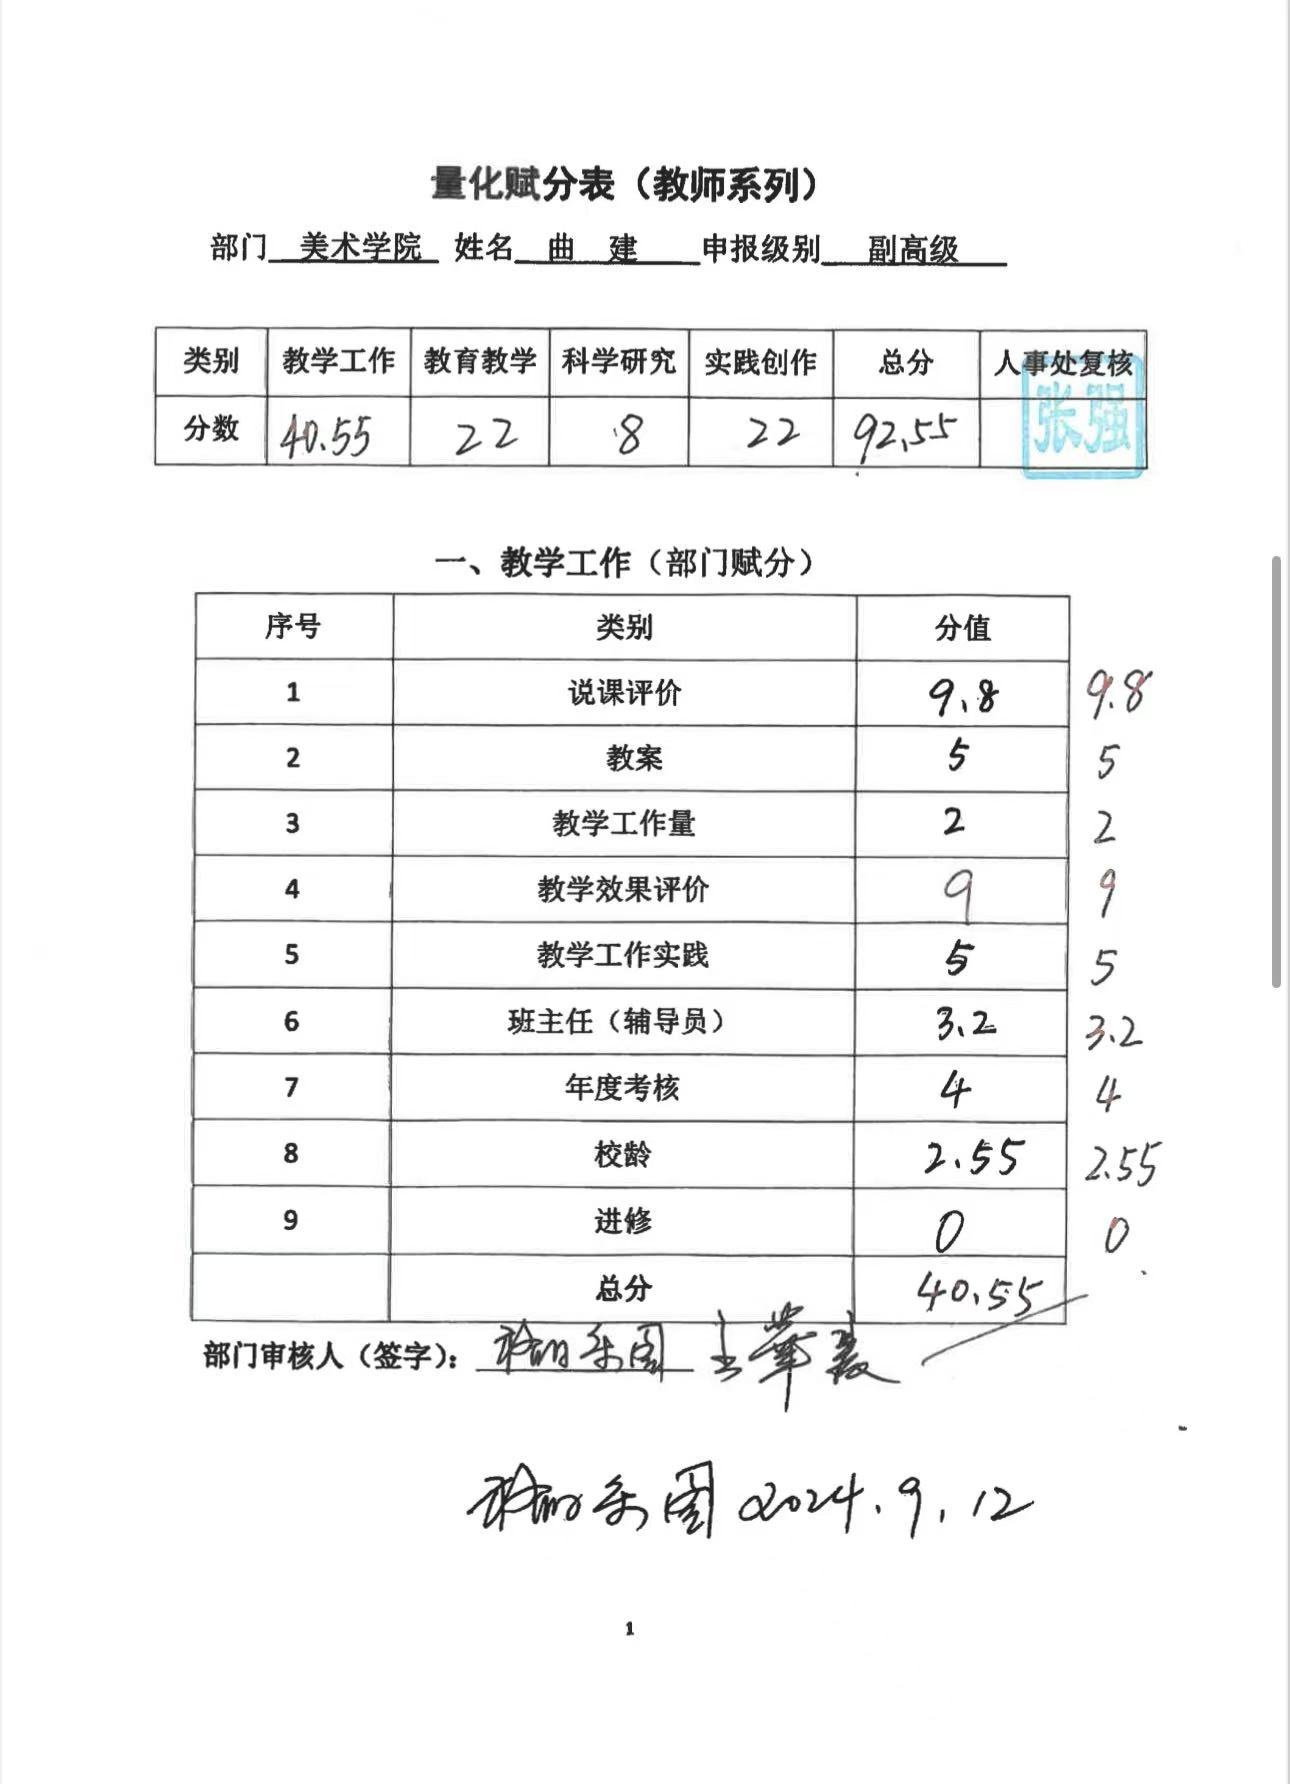 量化赋分表（教师系列）
部门 美术学院 姓名 曲 建 申报级别 副高级
类别 教学工作 教育教学 科学研究 实践创作 总分 人事处复核
分数 40.55 22 8 22 92.55 张强
一、教学工作（部门赋分）
序号 类别 分值
1 说课评价 9.8 9.8
2 教案 5 5
3 教学工作量 2 2
4 教学效果评价 9 9
5 教学工作实践 5 5
6 班主任（辅导员） 3.2 3.2
7 年度考核 4 4
8 校龄 2.55 2.55
9 进修 0 0
总分 40.55
部门审核人（签字）：
2024.9.12
1